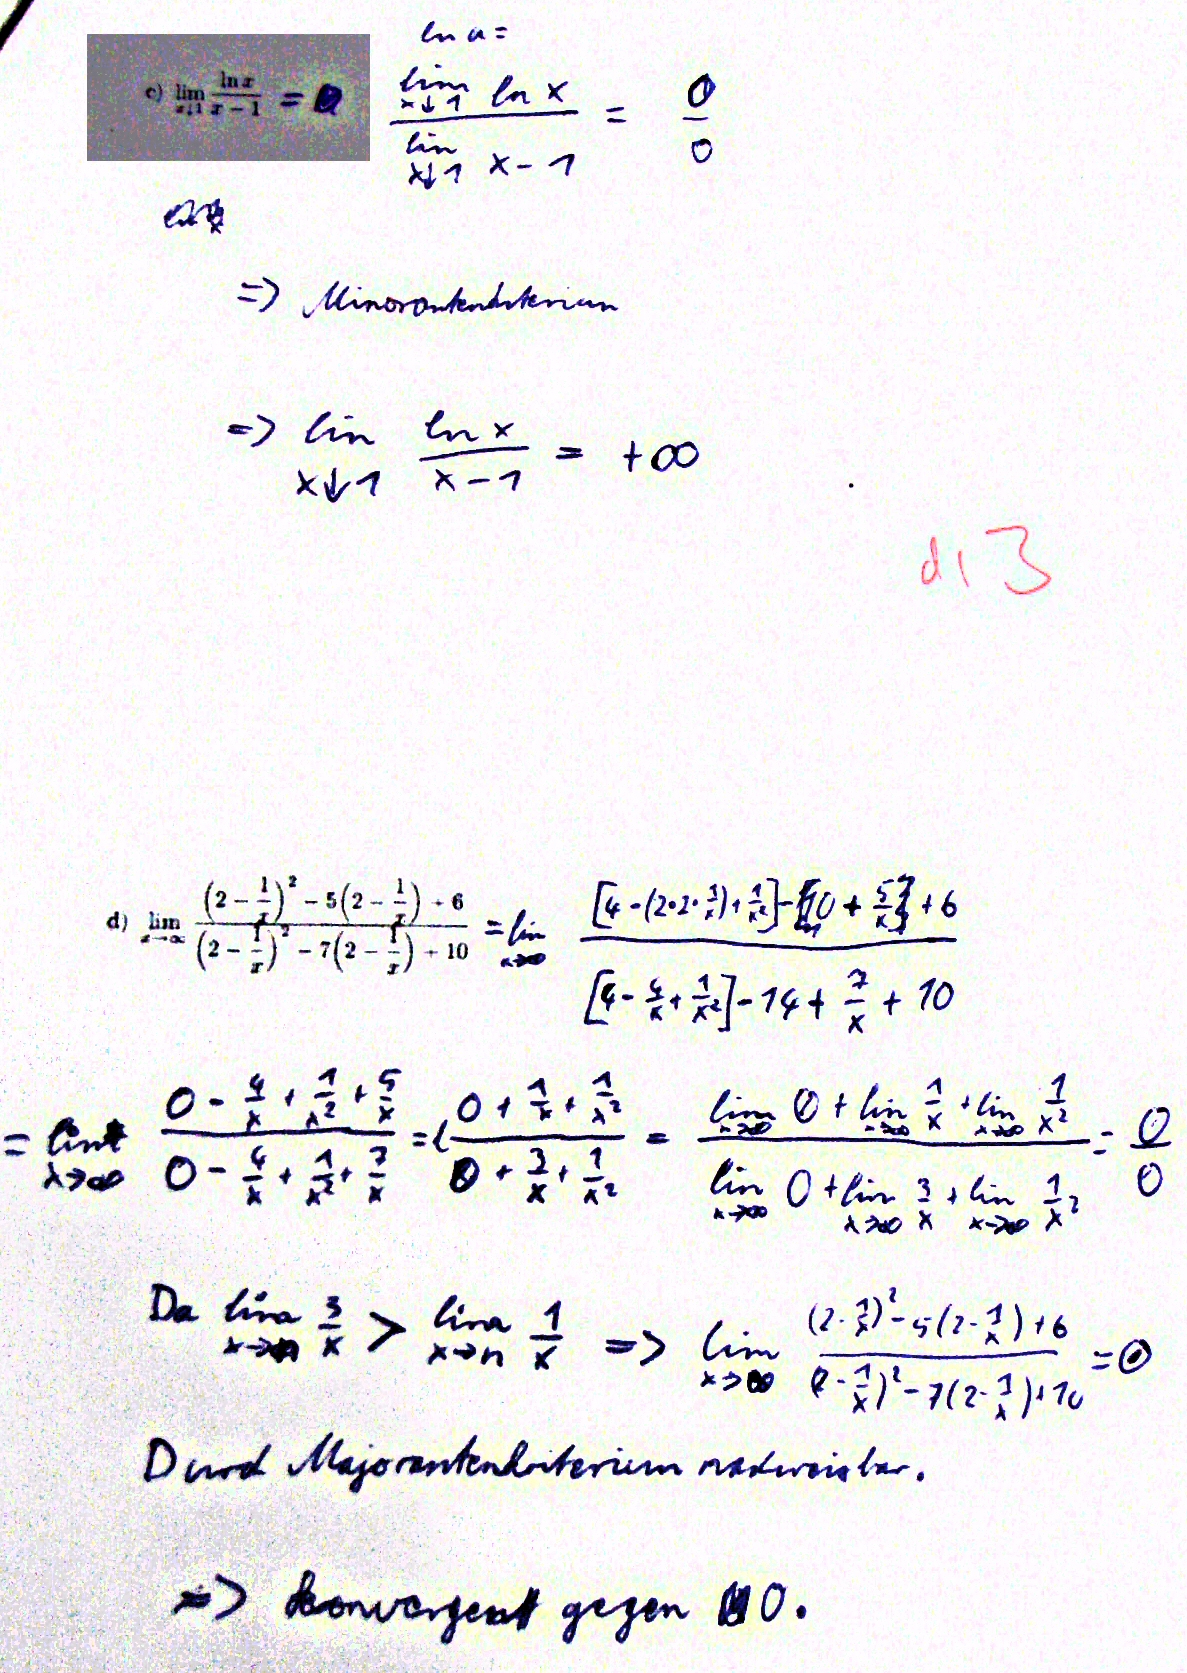 ln a =
c) lim x↓1 ln x / x − 1 = 0
lim x↓1 ln x / lim x↓1 x − 1 = 0/0
=> Minorantenkriterium
=> lim x↓1 ln x / x − 1 = +∞
d) 3
d) lim x→∞ (2 − 1/x)² − 5(2 − 1/x) + 6 / (2 − 1/x)² − 7(2 − 1/x) + 10 = lim x→∞ [4 − (2·2·1/x) + 1/x²] − 10 + 5/x + 6 / [4 − 4/x + 1/x²] − 14 + 7/x + 10
= lim x→∞ 0 − 4/x + 1/x² + 5/x / 0 − 4/x + 1/x² + 7/x = 0 + 1/x + 1/x² / 0 + 3/x + 1/x² = lim x→∞ 0 + lim x→∞ 1/x + lim x→∞ 1/x² / lim x→∞ 0 + lim x→∞ 3/x + lim x→∞ 1/x² = 0/0
Da lim x→n 3/x > lim x→n 1/x => lim x→∞ (2 − 1/x)² − 5(2 − 1/x) + 6 / (2 − 1/x)² − 7(2 − 1/x) + 10 = 0
Durch Majorantenkriterium nachweisbar.
=> konvergent gegen 0.